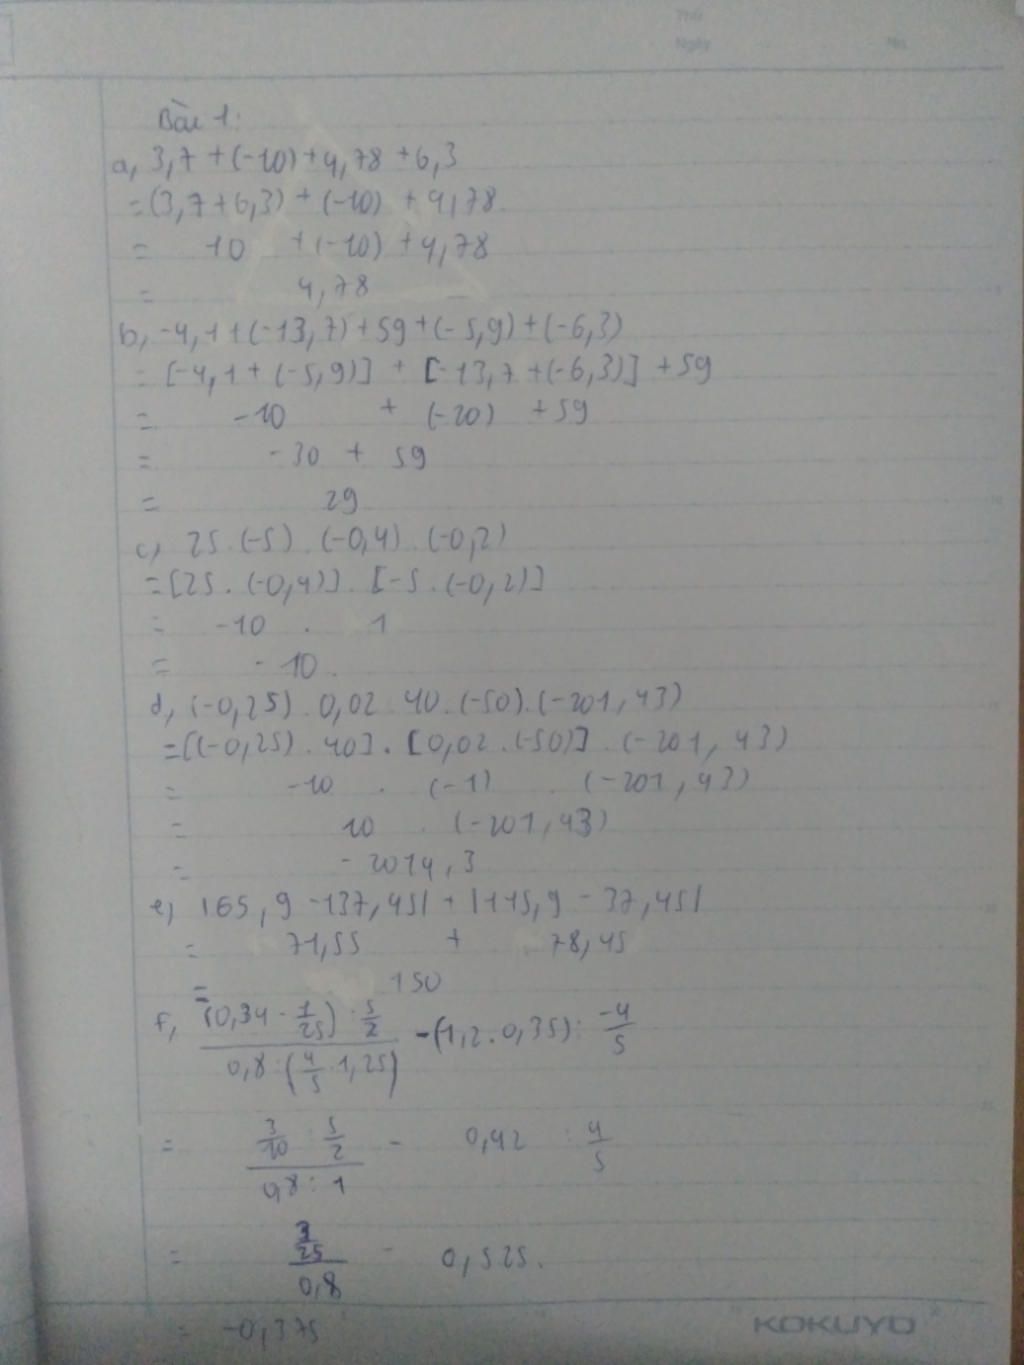 Thứ
Ngày No.
Bài 1:
a, 3,7 + (-10) + 4,78 + 6,3
= (3,7 + 6,3) + (-10) + 4,78
= 10 + (-10) + 4,78
= 4,78
b, -4,1 + (-13,7) + 59 + (-5,9) + (-6,3)
= [-4,1 + (-5,9)] + [-13,7 + (-6,3)] + 59
= -10 + (-20) + 59
= -30 + 59
= 29
c, 25 . (-5) . (-0,4) . (-0,2)
= [25 . (-0,4)] . [-5 . (-0,2)]
= -10 . 1
= -10.
d, (-0,25) . 0,02 . 40 . (-50) . (-201,43)
= [(-0,25) . 40] . [0,02 . (-50)] . (-201,43)
= -10 . (-1) . (-201,43)
= 10 . (-201,43)
= -2014,3
e, |65,9 - 137,45| + |115,9 - 37,45|
= 71,55 + 78,45
= 150
f, (0,34 - 1/25) : 5/2 / 0,8 : (4/5 . 1,25) - (1,2 . 0,35) : -4/5
= 3/10 : 5/2 / 0,8 : 1 - 0,42 : 4/5
= 3/25 / 0,8 - 0,525.
= -0,375
KOKUYO